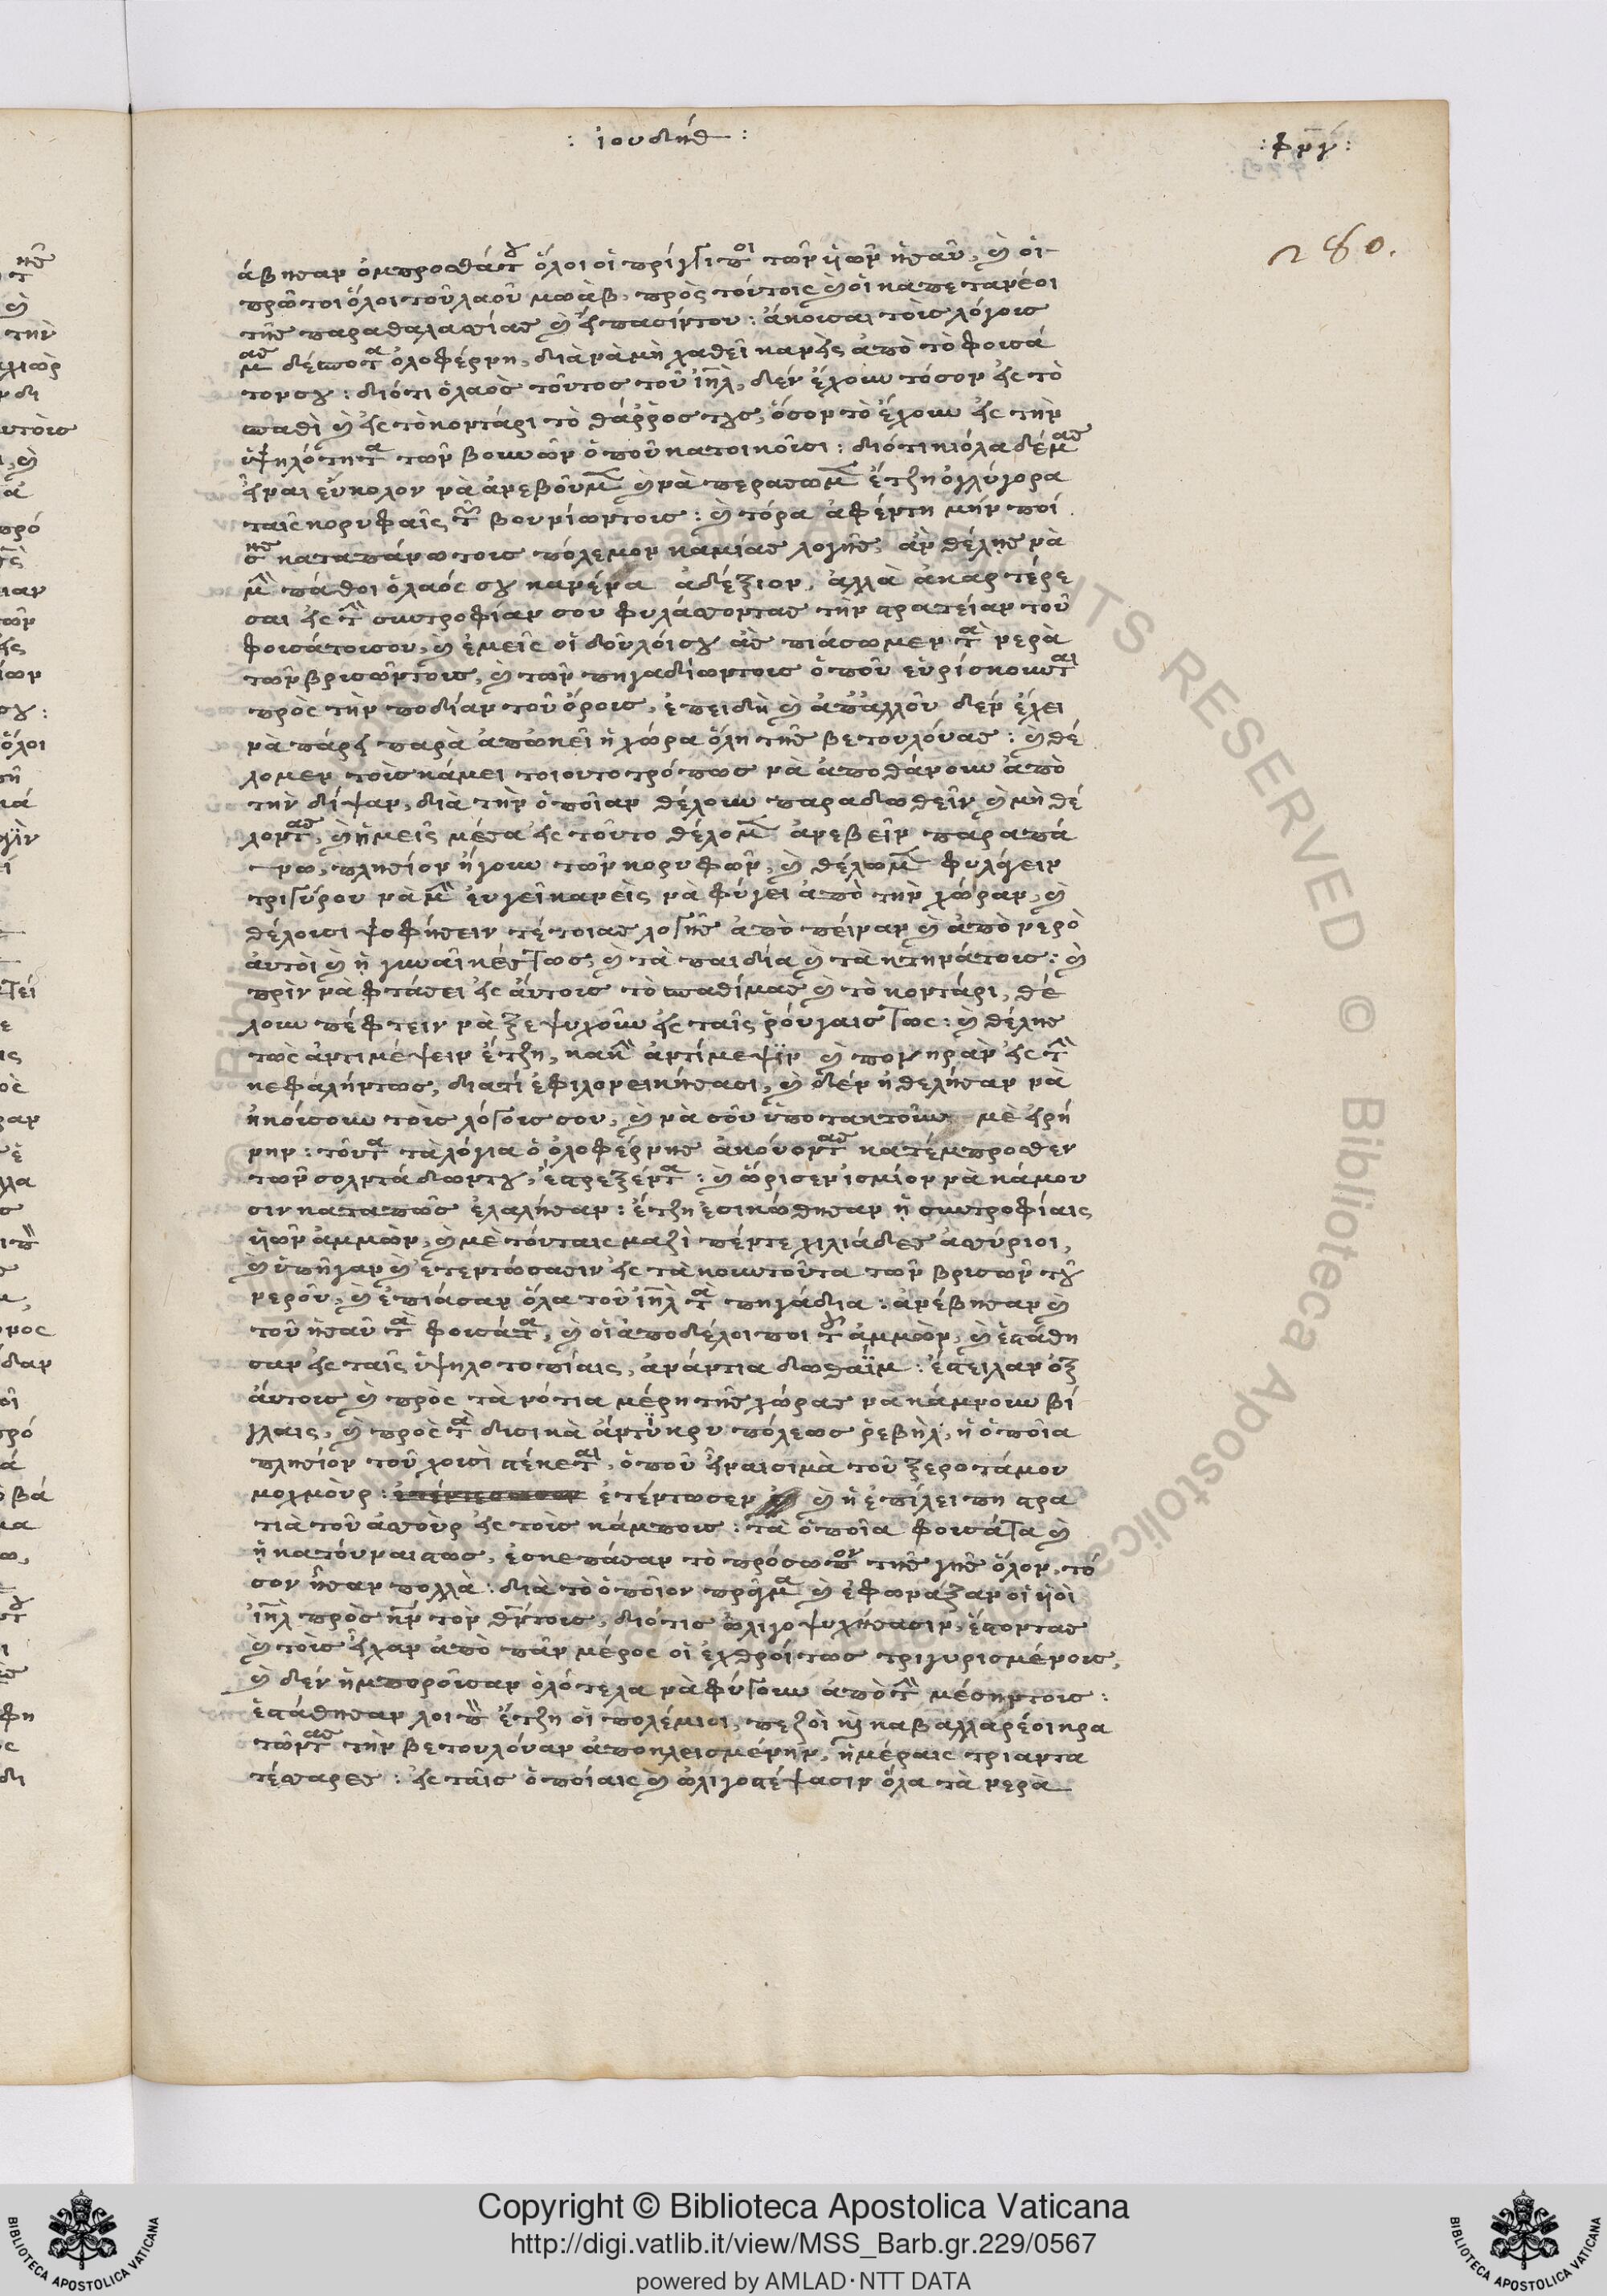 : ἰουδήθ :
: φξγ :
280.
άβησαν ὀμπροσθάτου ὅλοι οἱ πρίγγιποι τῶν ὑῶν ἠσαῦ, καὶ οἱ
πρῶτοι ὅλοι τοῦ λαοῦ μωὰβ, πρὸς τούτοις καὶ οἱ καπετανέοι
τῆς παραθαλασσίας καὶ εἶπασίντου : ἄκουσαι τοὺς λόγους
μας δέσποτα ὀλοφέρνη, διὰ νὰ μὴ χαθεῖ κανεὶς ἀπὸ τὸ φουσά
τονσου : διότι ὁ λαὸς τοῦτος τοῦ ἰηλ, δὲν ἔχουν τόσον εἰς τὸ
σπαθὶ καὶ εἰς τὸ κοντάρι τὸ θάῤῥος τους, ὅσον τὸ ἔχουν εἰς τὴν
ὑψηλότητα τῶν βουνῶν ὁποῦ κατοικοῦσι : διότι κιόλα δέ μας
εἶναι εὔκολον νὰ ἀνεβοῦμεν καὶ νὰ περάσωμεν ἔτζη ὀγλύγορα
ταῖς κορυφαῖς τῶν βουνίωντους : καὶ τόρα ἀφέντη μήν ποί
σης καταπάνωτους πόλεμον καμίας λογῆς, ἀν θέλῃς νὰ
μὴν πάθοι ὁ λαός σου κανένα ἀδέξιον, ἀλλὰ ἀκαρτέρε
σαι εἰς τὴν συντροφίαν σου φυλάσσοντας τὴν στρατείαν τοῦ
φουσάτουσου, καὶ ἐμεῖς οἱ δοῦλόισου ἀς πιάσωμεν τὰ νερὰ
τῶν βρισῶντους, καὶ τῶν πηγαδίωντους ὁποῦ εὑρίσκουνται
πρὸς τὴν ποδίαν τοῦ ὄρους, ἐπειδὴ καὶ ἀπἀλλοῦ δὲν ἔχει
νὰ πάρει παρὰ ἀπὠκεῖ ἡ χώρα ὅλη τῆς βετουλόυας : καὶ θέ
λομεν τοὺς κάμει τοιουτοτρόπως νὰ ἀποθάνουν ἀπὸ
τὴν δίψαν, διὰ τὴν ὁποῖαν θέλουν παραδωθεῖν καὶ μὴ θέ
λοντας, καὶ ἡμεῖς μέσα εἰς τοῦτο θέλομεν ἀνεβεῖν παραπά
νω, πλησίον ἤγουν τῶν κορυφῶν, καὶ θέλωμεν φυλάγειν
τριγύρου νὰ μὴν ἐυγεῖ κανεὶς νὰ φύγει ἀπὸ τὴν χώραν, καὶ
θέλουσι ψοφήσειν τέτοιας λογῆς ἀπὸ πείναν καὶ ἀπὸ νερὸ
ἀυτοὶ καὶ ἡ γυναῖκέςτως, καὶ τὰ παιδία καὶ τὰ κτηνάτους : καὶ
πρὶν να φτάσει εἰς ἀυτους τὸ σπαθίμας καὶ τὸ κοντάρι, θέ
λουν πέφτειν νὰ ξεψυχοῦν εἰς ταῖς ῥόυγαιςτως : καὶ θέλῃς
τως ἀντιμέψειν ἔτζη, κακὴν ἀντίμεψϊν καὶ πονηρὰν εἰς τὴν
κεφαλήντως, διατί ἐφιλονεικήσασι, καὶ δὲν ἠθελήσαν νὰ
ἠκούσουν τοὺς λόγους σου, καὶ νὰ σοῦ ὑποτακτοῦν μὲ εἰρή
νην : τόυτα τὰ λόγια ὁ ὀλοφέρνης ἀκόυοντας κατέμπροσθεν
τῶν σολντάδωντου, ἐστρεξέντα : καὶ ὥρισεν ἰσμίον νὰ κάμου
σιν καταπῶς ἐλαλήσαν : ἔτζη ἐσικώθησαν ᾑ συντροφίαις
ὑῶν ἀμμὼν, καὶ μὲ τόυταις μαζὶ πέντε χιλιάδες ἀσσύριοι,
καὶ ὑπῆγαν καὶ ἐτεντώσασιν εἰς τὰ κουντοῦντα τῶν βρισῶν τοῦ
νεροῦ, καὶ ἐπιάσαν ὅλα τοῦ ἰηλ τὰ πηγάδια : ἀνέβησαν καὶ
τοῦ ἠσαῦ τὰ φουσάτα, καὶ οἱ ἀποδέλοιποι τῶν ἀμμὼν, καὶ ἐστάθη
σαν εἰς ταῖς ὑψηλοτοπίαις, ἀνάντια δωθαΐμ : ἐστειλαν ὀξ
ἀυτους καὶ πρὸς τὰ νότια μέρη τῆς χώρας νὰ κάμνουν βί
γλαις, καὶ πρὸς τὰ δισικὰ ἀντΰκρυ πόλεως ῥεβὴλ, ἡ ὁποῖα
πλησίον τοῦ χουσὶ στέκεται, ὁποῦ εἶναι σιμὰ τοῦ ξεροτάμου
μοχμοὺρ : ἐτέντωσεν καὶ ἡ ἐπίλειπη στρα
τιὰ τοῦ ἀσσοὺρ εἰς τοὺς κάμπους : τὰ ὁποῖα φουσάτα καὶ
ᾑ κατόυναιςτως, ἐσκεπάσαν τὸ πρόσωπον τῆς γῆς ὅλον, τό
σον ἦσαν πολλὰ : διὰ τὸ ὁποῖον πρᾶγμα καὶ ἐφωνάξαν οἱ ὑοὶ
ἰηλ πρὸς κν τὸν θντους, διότις ὠλιγοψυχήσασιν, ἐστοντας
καὶ τοὺς εἶχαν ἀπὸ πᾶν μέρος οἱ ἐχθροίτως τριγυρισμένους,
καὶ δὲν ἠμπορούσαν ὁλότελα νὰ φύγουν ἀπὸ τὴν μέσηντους :
ἐστάθησαν λοιπὸν ἔτζη οἱ πολέμιοι, πεζοὶ κὶ καβαλλαρέοι κρα
τῶντας τὴν βετουλόυαν ἀποκλεισμένην, ἡμέραις τριαντα
τέσσαρες : εἰς ταῖς ὁποίαις καὶ ὠλιγοστέψασιν ὅλα τὰ νερὰ
Copyright © Biblioteca Apostolica Vaticana
http://digi.vatlib.it/view/MSS_Barb.gr.229/0567
powered by AMLAD·NTT DATA